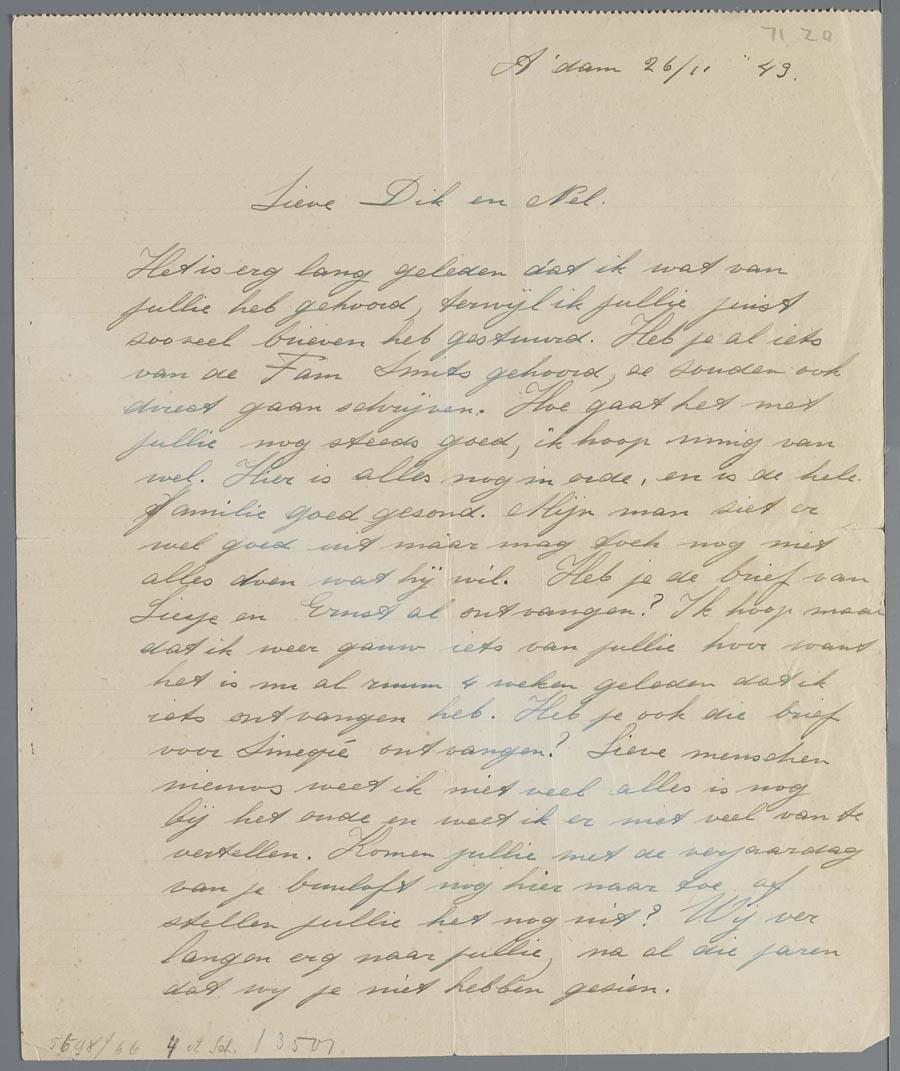 71 29
A'dam 26/11 "43.
Lieve Dik en Nel.
Het is erg lang geleden dat ik wat van
jullie heb gehoord, terwijl ik jullie juist
sooveel brieven heb gestuurd. Heb je al iets
van de Fam Smits gehoord, se souden ook
direct gaan schrijven. Hoe gaat het met
jullie nog steeds goed, ik hoop innig van
wel. Hier is alles nog in orde, en is de hele
familie goed gesond. Mijn man siet er
wel goed uit maar mag toch nog niet
alles doen wat hij wil. Heb je de brief van
Liesje en Ernst al ontvangen? Ik hoop maar
dat ik weer gauw iets van jullie hoor want
het is nu al ruim 4 weken geleden dat ik
iets ontvangen heb. Heb je ook die brief
voor ontvangen? Lieve menschen
nieuws weet ik niet veel alles is nog
bij het oude en weet ik er niet veel van te
vertellen. Komen jullie met de verjaardag
van je nog hier naar toe of
stellen jullie het nog uit? Wij ver
langen erg naar jullie, na al die jaren
dat wij je niet hebben gesien.
4 et Sch. 13501